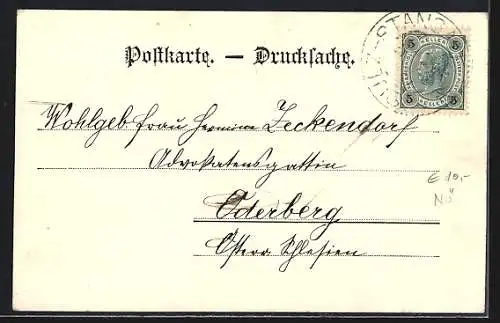 Postkarte. — Drucksache.
5 HELLER 5
5 HELLER 5
Wohlgeb frau Hermine Zeckendorf
Advokatensgattin
Oderberg
Österr Schlesien
€ 10,-
NÖ